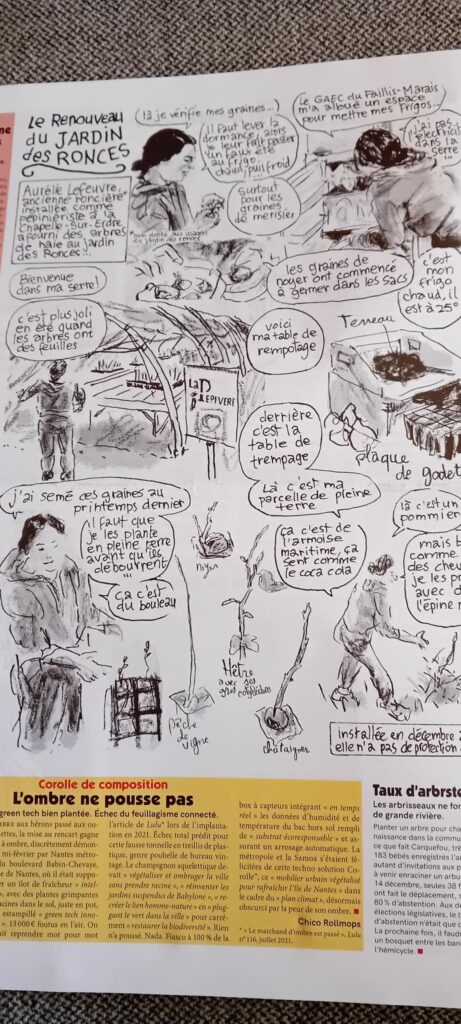 Le Renouveau
du JARDIN
des RONCES
Aurélie Lefeuvre,
ancienne Roncière*
installée comme
pépiniériste à la
Chapelle-Sur-Erdre
a fourni des arbres
de haie au jardin
des Ronces...
(là je vérifie mes graines...)
il faut lever la
dormance, alors
je leur fait passer
un faux été
au frigo.
chaud, puis froid
Surtout
pour les
graines
de merisier
*nom donné aux usagers
du jardin des ronces
Le GAEC du Faillis-Marais
m'a alloué un espace
pour mettre mes frigos...
j'ai pas
électricité
dans la
serre
les graines de
noyer ont commencé
à germer dans les sacs
c'est
mon
frigo
chaud, il
est à 25°
Bienvenue
dans ma serre!
c'est plus joli
en été quand
les arbres ont
des feuilles
LA
LEPIVERT
voici
ma table de
rempotage
Terreau
plaque
de godet
derrière
c'est la
table de
trempage
Là c'est ma
parcelle de pleine
terre
j'ai semé ces graines au
printemps dernier
il faut que
je les plante
en pleine terre
avant qu'ils
débourrent
...
ça c'est
du bouleau
noyer
ça c'est de
l'armoise
maritime, ça
sent comme
le coca cola
Hêtre
avec ses
gros
pêche
de
vigne
châtaigner
là c'est un
pommier
mais
comme
des
je les
avec
l'épine
installée en décembre
elle n'a pas de protection
Corolle de composition
L'ombre ne pousse pas
green tech bien plantée. Échec du feuillagisme connecté.
aux hérons passé aux ou-
ettes, la mise au rencart gagne
à ombre, discrètement démon-
mi-février par Nantes métro-
du boulevard Babin-Chevaye,
e de Nantes, où il était suppo-
un îlot de fraîcheur « intel-
avec des plantes grimpantes
racines dans le sol, juste en pot,
estampillé « green tech inno-
». 13 000 € foutus en l'air. On
ait reprendre mot pour mot
l'article de Lulu* lors de l'implanta-
tion en 2021. Échec total prédit pour
cette fausse tonnelle en treillis de plas-
tique, genre poubelle de bureau vin-
tage. Le champignon squelettique de-
vait « végétaliser et ombrager la ville
sans prendre racine », « réinventer les
jardins suspendus de Babylone », « re-
créer le lien homme-nature » en « plug-
gant le vert dans la ville » pour carré-
ment « restaurer la biodiversité ». Rien
n'a poussé. Nada. Fiasco à 100 % de la
box à capteurs intégrant « en temps
réel » les données d'humidité et de
température du bac hors sol rempli
de « substrat écoresponsable » et as-
surant un arrosage automatique. La
métropole et la Samoa s'étaient fé-
licitées de cette techno solution Co-
rolle", ce « mobilier urbain végétalisé
pour rafraîchir l'île de Nantes » dans
le cadre du « plan climat », désormais
obscurci par la peur de son ombre.
Chico Rollmops
* « Le marchand d'ombre est passé », Lulu
n° 116, juillet 2021.
Taux d'arbrste
Les arbrisseaux ne fo
de grande rivière.
Planter un arbre pour cha
naissance dans la commu
ce que fait Carquefou, trè
183 bébés enregistrés l'a
autant d'invitations aux p
à venir enraciner un arbu
14 décembre, seules 38 f
ont fait le déplacement, s
80 % d'abstention. Aux de
élections législatives, le t
d'abstention n'était que c
La prochaine fois, il faud
un bosquet entre les ban
l'hémicycle.